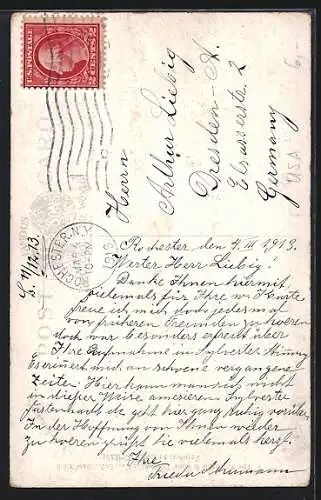 U.S. POSTAGE
2 CENTS 2
ROCHESTER, N.Y.
MAR 4
1913
POST CARD
Herrn
Arthur Liebig
Dresden-A.
Elsasserstr. 2
Germany
USA
6,-
11/12.13.
Rochester den 4. III 1913.
Werter Herr Liebig!
Danke Ihnen hiermit
vielemals für Ihre w. Karte
freue ich mich doch jedesmal
von früheren Freunden zu hoeren
doch war besonders erfreut über
Ihre Aufnahme in Sylvester
Es erinnert mich an schoene vergangene
Zeiten. Hier kann man sich nicht
in dieser Weise amesieren Sylvester
Fastenbacht etc geht hier ganz ruhig vorüber
In der Hoffnung von Ihnen wieder
zu hoeren grüßt Sie vielemals herzl.
Ihre
Frieda